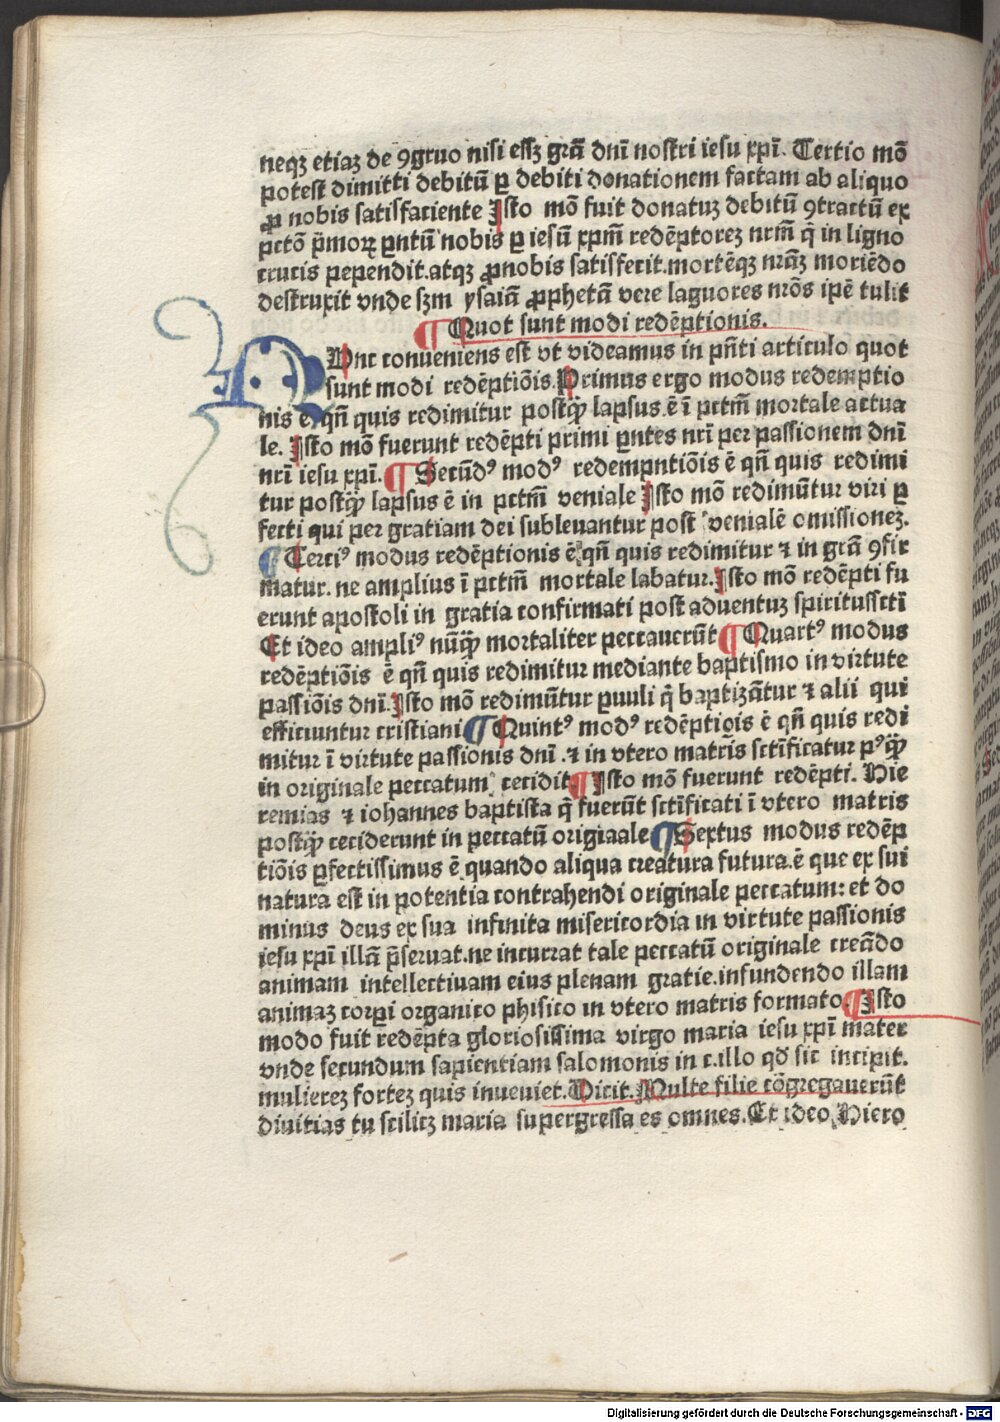 neqꝫ etiaꝫ de ꝯgruo nisi eſſꝫ grã dnĩ noſtri ieſu xpĩ. Tertio mõ
poteſt dimitti debitũ ꝑ debiti donationem factam ab aliquo
ꝓ nobis ſatisfaciente Iſto mõ fuit donatuꝫ debitũ ꝯtractũ ex
pctõ p̃moꝝ ꝑntũ nobis ꝑ ieſũ xpm̃ redẽptoreꝫ nrm̃ q̃ in ligno
crucis pependit.atqꝫ ꝓ nobis ſatiſfecit.mortẽqꝫ nrãꝫ moriẽdo
deſtruxit vnde ſꝫm yſaiã ꝓphetã vere laguores nrõs ipẽ tulit
¶ Quot ſunt modi redẽptionis.
Nunc conueniens eſt vt videamus in pñti articulo quot
ſunt modi redẽptiõis.Primus ergo modus redemptio
nis ẽ qñ quis redimitur poſtꝙ̃ lapſus.ẽ ĩ pctm̃ mortale actua
le. Iſto mõ fuerunt redẽpti primi ꝑntes nrĩ per paſſionem dnĩ
nrĩ ieſu xpĩ. ¶ Secũdꝰ modꝰ redempntiõis ẽ qñ quis redimi
tur poſtꝙ̃ lapſus ẽ in pctm̃ veniale Iſto mõ redimũtur viri ꝑ
fecti qui per gratiam dei ſubleuantur poſt venialẽ omiſſioneꝫ.
¶ Terciꝰ modus redẽptionis ẽ qñ quis redimitur ⁊ in grã ꝯfir
matur. ne amplius ĩ pctm̃ mortale labatur.Iſto mõ redẽpti fu
erunt apoſtoli in gratia confirmati poſt aduentuꝫ ſpirituſſctĩ
Et ideo ampliꝰ nũꝙ̃ mortaliter peccauerũt ¶ Quartꝰ modus
redẽptiõis ẽ qñ quis redimitur mediante baptiſmo in virtute
paſſiõis dnĩ.Iſto mõ redimũtur ꝑuuli q̃ baptizãtur ⁊ alii qui
efficiuntur criſtiani ¶ Quintꝰ modꝰ redẽptiois ẽ qñ quis redi
mitur ĩ virtute paſſionis dnĩ .⁊ in vtero matrĩs ſctĩficatur pꝰꝙ̃
in originale peccatum cecidit ¶ Iſto mõ fuerunt redẽpti. Hie
remias ⁊ iohannes baptiſta q̃ fuerũt ſctĩficati ĩ vtero matris
poſtꝙ̃ ceciderunt in peccatũ origiaale ¶ Sextus modus redẽp
tiõis ꝑfectiſſimus ẽ quando aliqua creatura futura.ẽ que ex ſui
natura eſt in potentia contrahendi originale peccatum: et do
minus deus ex ſua infinita miſericordia in virtute paſſionis
ieſu xpĩ illã p̃ſeruat.ne incurrat tale peccatũ originale creãdo
animam intellectiuam eius plenam gratie.infundendo illam
animaꝫ corpi organico phiſico in vtero matris formato.¶ Iſto
modo fuit redẽpta glorioſiſſima virgo maria ieſu xpĩ mater
vnde ſecundum ſapientiam ſalomonis in c.illo qđ ſic incipit.
muliereꝫ forteꝫ quis inueniet.Dicit. Multe filie cõgregauerũt
diuitias tu ſcilicꝫ maria ſupergreſſa es omnes.Et ideo Hiero
Digitalisierung gefördert durch die Deutsche Forschungsgemeinschaft - DFG